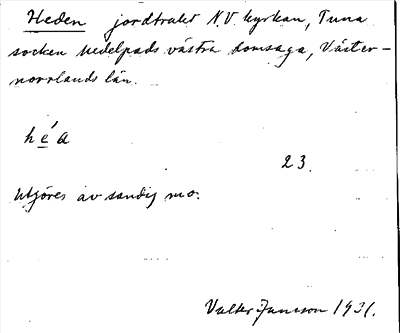 Heden jordtrakt N.V. kyrkan, Tuna
socken Medelpads västra domsaga, Väster-
norrlands län.
héa
23.
Utgöres av sandig mo.
Valter Jansson 1931.